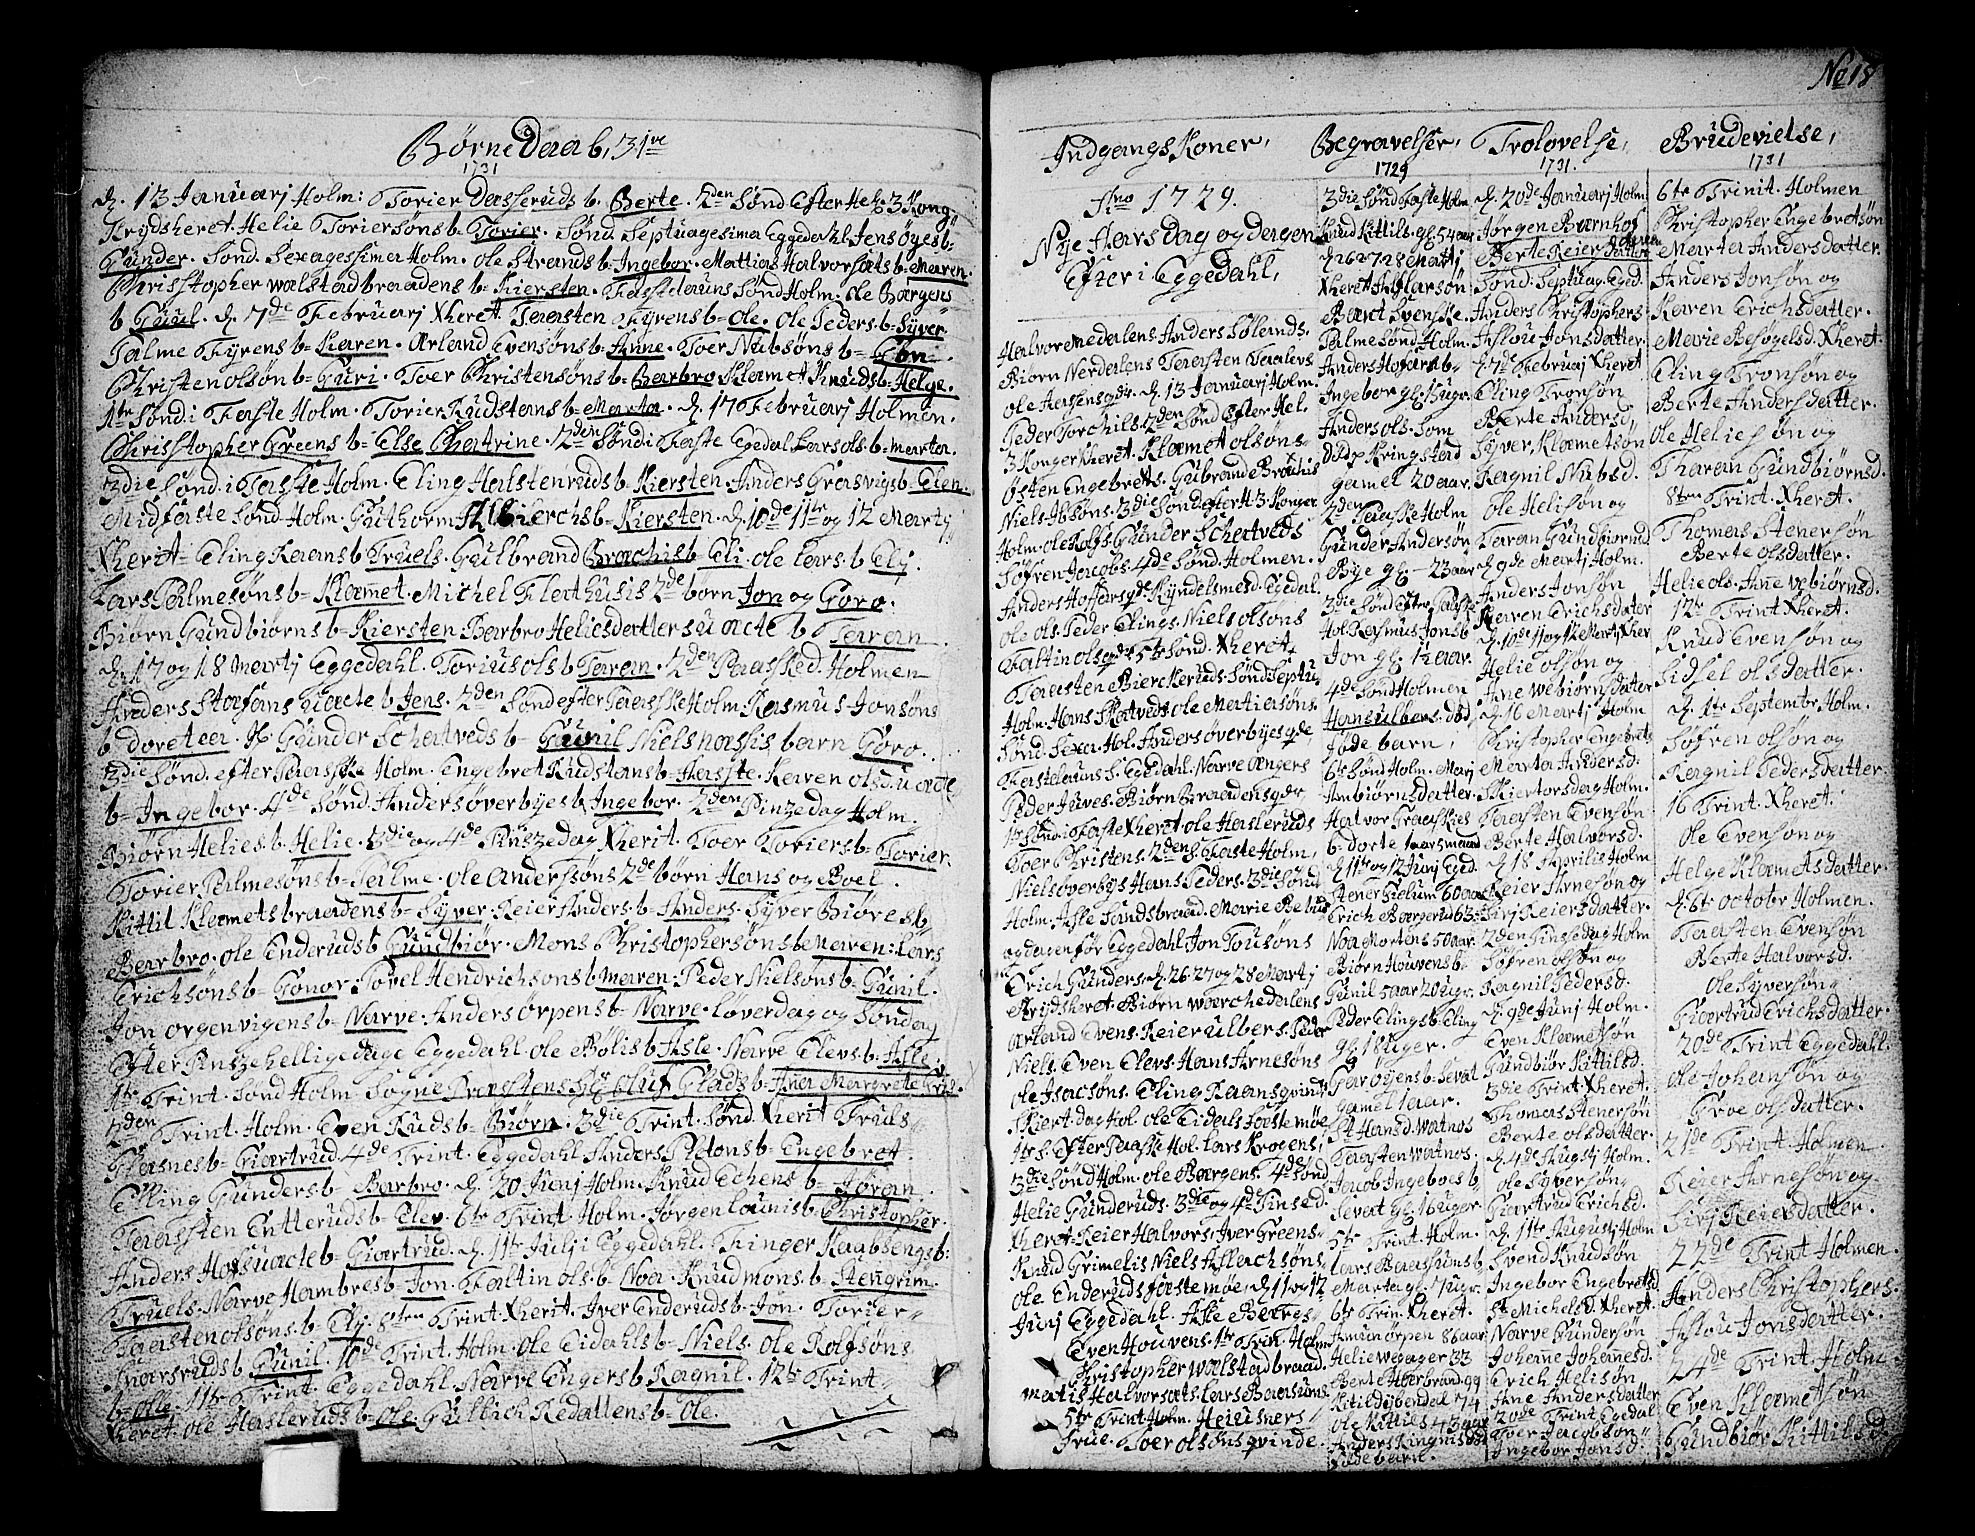 No 18
Børne Daab, 31ve
1731
d. 13 Januarj Holm: Torier Dasseruds b. Berte. 2den Sønd Efter Hel: 3 Kong
Krydsheret. Helie Toriersøns b. Torier. Sønd Septuagesima Eggedahl Jens øyes b=
Gunder. Sønd. Sexagessima Holm. Ole Strands b= Ingebor. Mattias Halvorsøts b= Maren.
Christopher walstadbraadens b= Kiersten. Fastelauns Sønd Holm. Ole Bargens
b Guul. d. 7de Februarj Xheret. Taasten Fyrens b= Ole. Ole Peders b= Syver
Palme Fyrens b= Karen. Arland Evensøns b= Anne. Toer Nubsøns b=
Christen olsøn b= Guri. Toer Christensøns b= Barbro Klamet Knuds b= Helge.
1te Sønd i Faste Holm. Torier Rudstans b= Marta. d. 17 Februarj Holmen.
Christopher Greens b= Else Chatrine. 2den Sønd i Faste Egedal Lars ols b. marta.
3die Sønd. i Faste Holm. Eling Halstenruds b. Kiersten. Anders Grasvigs b. Elen.
Midfaste Sønd. Holm. Guthorm Bierchs b= Kiersten. d. 10de 11te og 12 Martij
Xheret= Eling Kaans b Truels. Gulbrand Brachis b Eli. Ole Lars. b Ely.
Lars Palmesøns b= Klamet. Michel Flathusis 2de børn Jon og Goro.
Biørn Gundbiørns b= Kiersten. Barbro Heliesdatters uacte b Taran
d. 17 og 18 Martj Eggedahl. Torius ols b Taran. 2den Paasked. Holmen
Anders Stafans uacte b Jens. 2den Sønd efter Paaske Holm. Rasmus Jonsøns
b. doretea. H. Gunder Schatveds b= Gunil Niels nassis barn Goro.
3die Sønd. efter Paaske Holm. Engebret Rudstans b= Aasste. Karen olsd. uacte
b= Ingebor. 4de Sønd. Anders øverbyes b= Ingebor. 2den Pinzedag Holm.
Biørn Helies b. Helie. 3die og 4de Pinszedag Xherit. Toer Toriers b= Torier.
Torier Palmesøns b= Palme. Ole Anderssøns 2de børn Hans og Boel.
Kittil Klamets braadens b= Syver. Reier Anders b= Anders. Syver Biøres b
Barbro. Ole Enderuds b Gundbiør. Mons Christophersøns b Maren: Lars
Erichsøns b= Gonor. Povel Hendrichsons b maren. Peder Nielsons b= Gunil.
Jon orgenvigens b= Narve. Anders ørpens b= Narve. Løverdag og Søndag
Efter Pinszehelligedage Eggedahl. Ole Bølis b Asle. Narve Elevs b= Asle.
1te Trint. Sønd Holm. Sogne Præstens Hr Oluf Glads b= Ana Margrete
2den Trint. Holm. Even Ruds b= Biørn. 3die Trint. Sønd. Xherit Truls
Glasnes b= Giartrud 4de Trint. Eggedahl Anders Pletons b= Engebret=
Elling Gunders b= Barbro. d. 20 Junj Holm. Knud Echens b= Jøran.
Taasten Entteruds b= Elev. 6te Trint. Holm. Jørgen Lounis b= Christopher.
Anders Hofs uacte b= Giartrud. d. 11te Julji Eggedahl. Finger Kaabbengs b.
Truels. Narve Hambres b Jon. Faltin ols b. Noa. Knud mons. b= Stengrim
Taasten olsøns. b Ely. 8ten Trint. Xherit. Iver Enderuds b. Jon. Torier
Snarsrulds b Gunil. 10de Trint. Holm. Ole Eidahls b= Niels. Ole Rolfsøns
b= Olle. 11te Trint. Eggedahl. Narve Engers b Ragnil. 12te Trint=
Xheret. Ole Haslerulds b= Ole. Gulbich Redallens b= Ole.
Indgangs Koner,
Ano 1729.
Nye Aars Dag og dagen
Efter i Eggedahl,
Halvor medalens Anders Sølands.
Biørn Nerdalens Taasten Taalevs
Ole Aasens qdr. d. 13 Januarj Holm.
Peder Torchils. 2den Sønd Efter Hel.
3 Konger Xheret. Klamet olsøns=
Østen Engebrets. Gubrande Brachis
Niels Ibsøns. 3die Sønd. efter H. 3 Konger
Holm. Ole Rolfs Gunder Schatveds
Søfren Jacobs. 4de Sønd. Holmen.
Anders Hoffarsqde Kyndelsmesd. Egedal.
Ole ols. Peder Elings. Niels olsøns
Faltin olsqde 5te Sønd. Xheret.
Taasten Bierkeruds. Sønd Septu
Holm. Hans Skatveds ole Matiasøns
Sønd. Sexa. Hol. Anders øverbyes qde,
Fastelauns S. Egedahl. Narve Angers
Peder Juves. Biørn Braadens qdr,
1te Sønd i Faste Xherit ole Haslerulds
Toer Christens. 2den S. Faste Holm,
Niels overbys Hans Peders. 3die Sønd
Holm. Asle Sandsbraad. Marie Be
og dagen før Eggedahl. Jon Tousøns
Erich Gunders. d. 26. 27 og 28 Martj
Krydsheret. Biørn warchedalens
Arland Evens. Reier Ulbers. Peder
Niels. Even Elevs. Hans Arnesøns
Ole Isacsøns. Eling Kaansqvind
Skiert. dag Hol. Ole Eidals fæstemøe
1te S. Efter Paaske Hol. Lars Krogens,
3die Sønd Holm. Ole Bargens. 4de Sønd
Helie Gunderuds. 3die og 4de Pinsed.
Xheret. Reier Halvors. Iver Greens
Knud Grimelis Niels Aslachsøns.
Ole Enderuds fæstemøe, d. 11 og 12
Junj Eggedahl. Asle Bergs,
Even Houvens. 1te Trin. Holm
Christopher walstadbraad.
matis Halvorsøts Lars Baasums
5te Trint Holm. Heiusners
Frue. Toer olsøns qvinde.
Begravelser,
1729
3die Sønd Faste Holm
Knud Kittils. gl. 54 aar
d. 26 27 28 Martj
Xheret Asl Larsøn
Baart Svenske.
Palme Sønd. Holm.
Anders Hofars b=
Ingebor gl. 15 ugr.
Anders ols. Som
død p Kringstad
gamel 20 aar.
2den Paaske Holm
Gunder Andersøn
Bye gl= 23 aar
3die Sønd Efter Paaske
Hol. Rasmus Jons b
Jon gl. 1½ aar.
4de Sønd Holmen
Hans Ulbers. død
føde barn,
6te Sønd Holm. Marj
Ambiørnsdatter.
Halvor Graaskies
b= dorte aarsmaand
d. 11te og 12 Junj Eged.
Stener Sielum 60 aar
Erich Bøgerud 63=
Noa Mortens 50 aar.
Biørn Houvens b=
Gunil 5 aar 20 ugr.
Peder Elings b. Eling
gl. 18 uger.
Gar øyens b= Sevat
gamel 1 aar.
St Hans d. Watnos
Taasten Watnos.
Jacob Ingeboes b=
Sevat gl. 16 uger.
5te Trint. Holm.
Lars Baasums b
Marta gl. 7 ugr.
6te Trin. Xheret.
Amun ørpen 86 aar
Helie wegager 33
Berte Aberbrand. 99
Kitil dybendal 74
Ole Kittils 43 aar
Anders Ringnis død
føde barn.
Trolovelse,
1731.
d. 20de Januarj Holm
Jørgen Baarnhof
Berte Reiersdatter
Sønd. Septuag. Eged.
Anders Christophers
Aslou Jonsdatter.
d. 7de Februarj Xheret
Eling Tronsøn
Berte Andersd
Syver, Klametsøn
Ragnil Nubsd.
Ole Helisøn og
Taran Gundbiørnd
d. 9de Martj Holm.
Anders Jonsøn
Karen Erichsdater
d. 10de 11 og 12 Martj Xher
Helie olsøn og
Ane webiørnsdater
d. 16 Martj Holm
Christopher Engebrets
Marta Andersd.
Skiertorsdag Holm.
Taasten Evensøn
Berte Halvorsd.
d. 18 Aprilis Holm
Reier Arnesøn og
Sirj Reiersdatter.
2den Pinsedag Holm
Søfren olsøn og
Ragnil Pedersd.
d. 9de Junj Holm.
Even Klametsøn
Gundbiør Kittilsd.
3die Trint. Xheret.
Thomas Stenersøn
Berte olsdatter.
d. 4de Augstj Holm.
Ole Syversøn,
Giartrud Erichsd.
d. 11te Augustj Holm
Svend Knudsøn
Ingebor Engebretsd
St. Michels d. Xheret.
Narve Gundersøn
Johanne Johannesd.
Erich Helisøn
Ane Andersdatter
20de Trint Egedal
Toer Jacobsøn
Ingebor Jonsd.
Brudevielse,
1731
6te Trinit. Holmen
Christopher Engebretsøn
Marta Andersdatter.
Anders Jonsøn og
Karen Erichsdatter.
Marie Besøgelsd. Xheret.
Eling Tronsøn og
Berte Andersdatter.
Ole Heliesøn og
Tharan Gundbiørnsd.
8ten Trint. Xheret.
Thomas Stenersøn
Berte olsdatter.
Helie ols. Ane vebiørnsd.
12te Trint Xheret.
Knud Evensøn og
Sidsel olsdatter.
d. 1te Septembr Holm.
Søfren olsøn og
Ragnil Pedersdatter.
16 Trint. Xheret.
Ole Evensøn og
Helge Klametsdatter.
d. 6te octobr Holmen.
Taasten Evensøn
Berte Halvorsd.
Ole Syversøn,
Giartrud Erichsdatter.
20de Trint Eggedahl.
Ole Johansøn og
Groe olsdatter.
21de Trint. Holmen
Reier Arnesøn og
Sirj Reiersdatter.
22de Trint Holmen.
Anders Christophers.
Aslou Jonsdatter.
24de Trint. Holm
Even Klametsøn
Gundbiør Kittilsd.